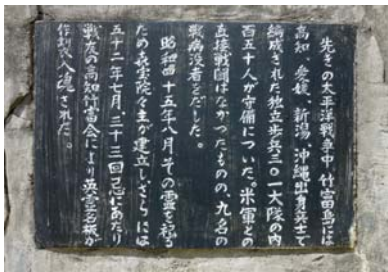 先きの太平洋戦争中、竹富島には
高知、愛媛、新潟、沖縄出身兵士で
編成された独立歩兵三〇一大隊の内
百五十人が守備についた。米軍との
直接戦闘はなかったものの、九名の
戦病没者をだした。
昭和四十五年八月、その霊を祀る
ため喜宝院々主が建立し、さらには
五十二年七月、三十三回忌にあたり
戦友の高知竹富会により英霊名板が
作刻、入魂された。